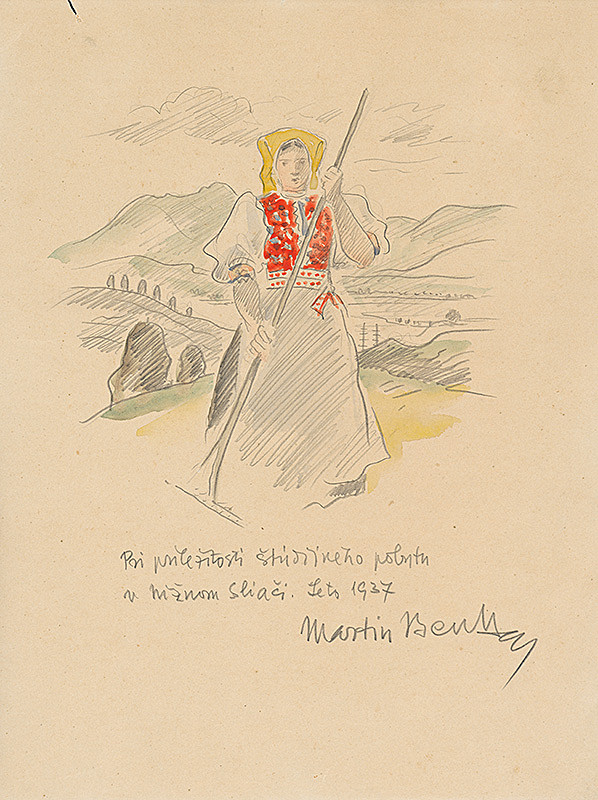 Pri príležitosti študijného pobytu
v Nižnom Sliači. Leto 1937
Martin Benka